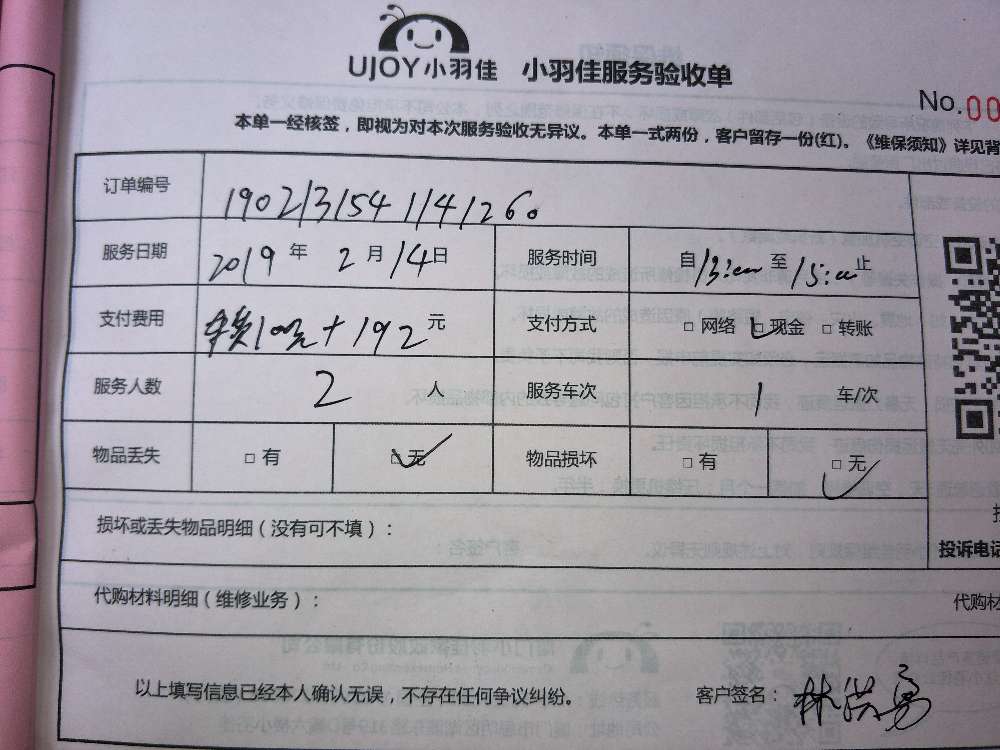 UJOY小羽佳 小羽佳服务验收单
No.00
本单一经核签，即视为对本次服务验收无异议。本单一式两份，客户留存一份(红)。《维保须知》详见背
订单编号 19021315411411260
服务日期 2019年2月14日 服务时间 自13:00至15:00止
支付费用 100元+192元 支付方式 □网络 □现金 □转账
服务人数 2人 服务车次 1 车/次
物品丢失 □有 □无 物品损坏 □有 □无
损坏或丢失物品明细（没有可不填）：
投诉电话
代购材料明细（维修业务）： 代购材
以上填写信息已经本人确认无误，不存在任何争议纠纷。 客户签名：林洪勇